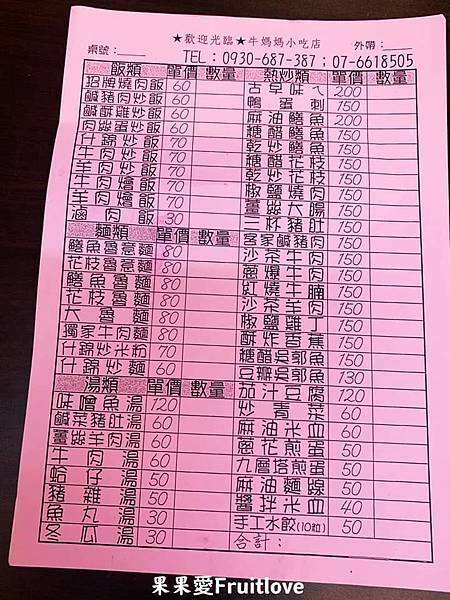 ★歡迎光臨★牛媽媽小吃店
桌號：
外帶：
TEL：0930-687-387；07-6618505
飯類 單價 數量
招牌燒肉飯 60
鹹豬肉炒飯 60
鹹酥雞炒飯 60
肉絲蛋炒飯 60
什錦炒飯 70
牛肉炒飯 70
羊肉炒飯 70
牛肉燴飯 70
羊肉燴飯 70
滷肉飯 30
麵類 單價 數量
鱔魚魯意麵 80
花枝魯意麵 80
鱔魚魯麵 80
花枝魯麵 80
大魯麵 80
獨家牛肉麵 80
什錦炒米粉 70
什錦炒麵 70
湯類 單價 數量
味噌魚湯 120
鹹菜豬肚湯 60
薑絲羊肉湯 60
牛肉湯 60
蛤仔湯 50
豬雜湯 50
魚丸湯 30
冬瓜湯 30
熱炒類 單價 數量
古早味ㄟ 200
鴨蛋刺 150
麻油鱔魚 200
糖醋鱔魚 150
乾炒鱔魚 150
糖醋花枝 150
乾炒花枝 150
椒鹽燒肉 150
薑絲大腸 150
三杯豬肚 150
客家鹹豬肉 150
沙茶牛肉 150
蔥爆牛肉 150
紅燒牛腩 150
沙茶羊肉 150
椒鹽雞丁 150
酥炸香蕉 150
糖醋吳郭魚 150
豆瓣吳郭魚 130
茄汁豆腐 120
炒青菜 60
麻油米血 60
蔥花煎蛋 50
九層塔煎蛋 50
麻油麵線 50
醬拌米血 40
手工水餃(10粒) 50
合計：
果果愛Fruitlove